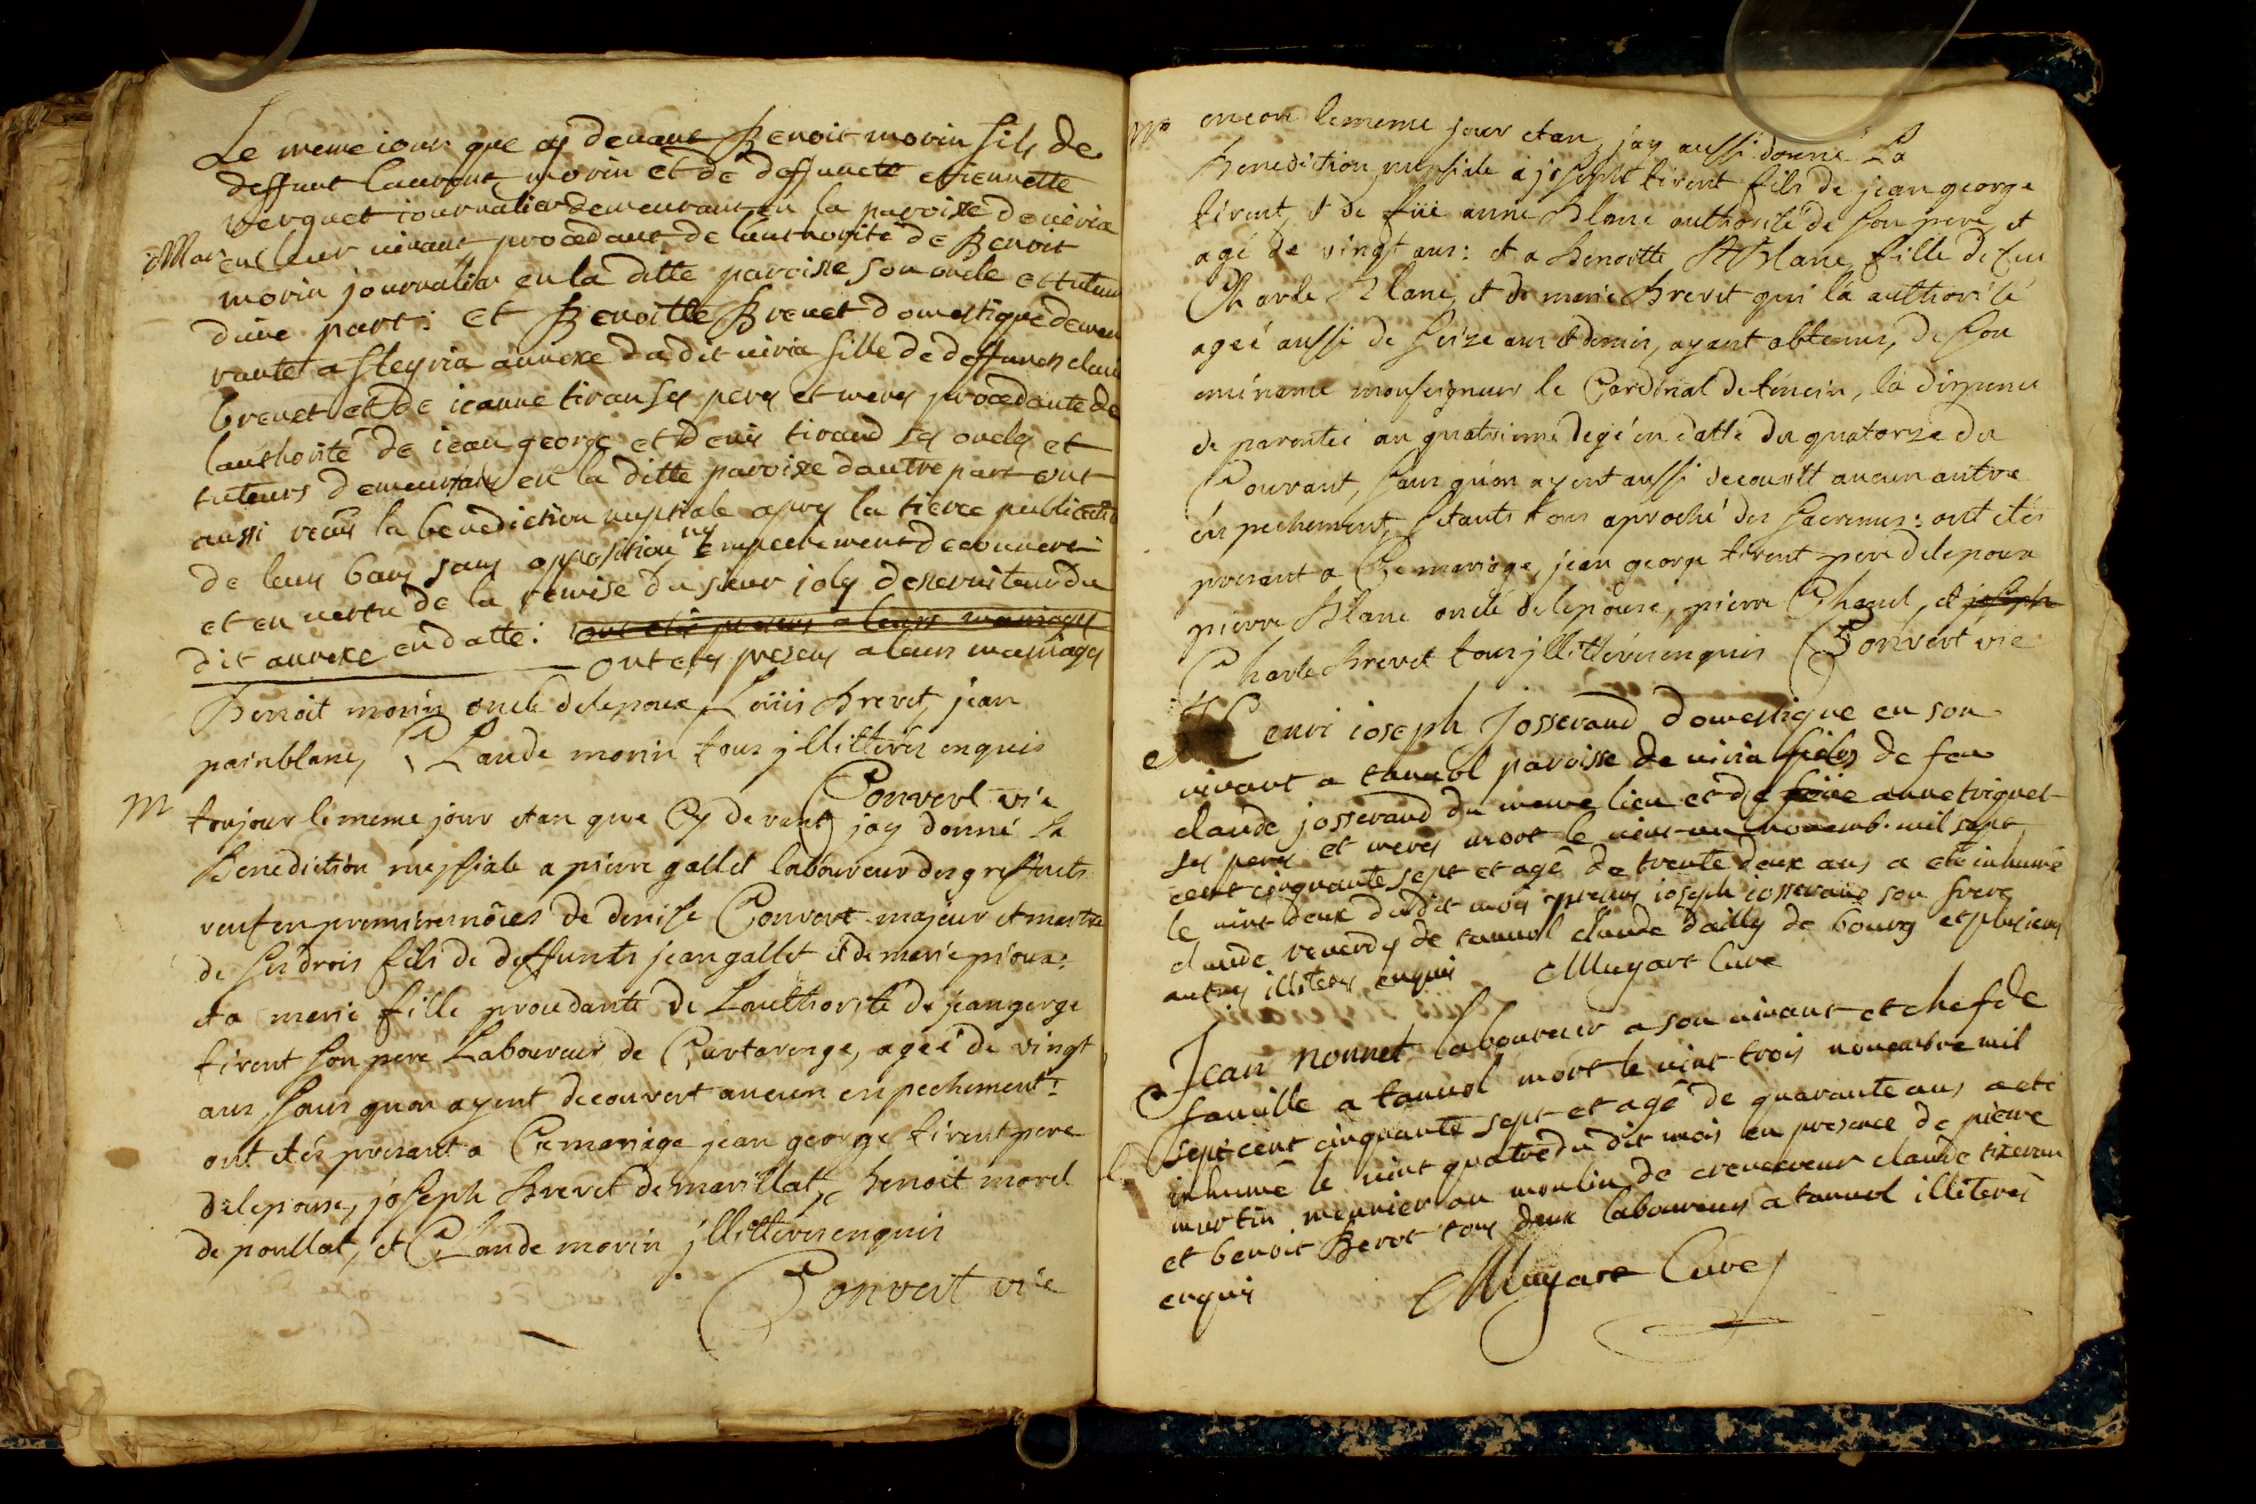 Le meme iour que cy devant Benoit morin fils de
deffunt laurent morin et de deffuncte etiennette
verguet iournalier demeurant en la paroisse de viria
Mar en leur vivant procedant de lauthorité de Benoit
morin journalier en la ditte paroisse son oncle et tuteur
dune part : et Benoitte Brevet domestique demeu
rante a fleyria annexe du dit viria fille de deffuncts claude
brevet et de ieanne tiran ses peres et meres procedante de
lauthorité de iean george et denis tirand ses oncles et
tuteurs demeurants en la ditte paroisse dautre part ont
aussi recus la benediction nuptiale apres la tierce publication
de leurs bans sans opposition ny empechement decouvert
et en vertu de la remise du sieur joly desserviteur du
dit annexe en datte : ont etés presens a leurs mariages
ont etés presens a leurs mariages
Benoit morin oncle delepoux, Loüis brevet, jean
painblanc, Claude morin tous jllitterés enquis
Convert vie
M toujour le meme jour et an que Cy devant jay donné la
Benediction nuptiale a pierre gallet laboureur des greffets
veuf en premiere nôces de denise Convert majeur et maitre
de ses drois fils de deffunts jean gallet et de marie pioux :
et a marie fille procedante de Lauthorité de jean gerge
tirent son pere Laboureur de Curtaringe, ageé de vingt
ans, sans quon ayent decouvert aucun enpechement :
ont etés present a Ce mariage jean george tirent pere
delepouse, joseph brevet de marillat, benoit morel
de poullat, et Claude morin jllitterés enquis
Convert vie
M encore le meme jour et an jay aussi donné La
benediction nuptiale a joseph tirent fils de jean george
tirent, et de füe anne blanc authorité de son pere et
agé de vingt ans : et a benoitte blanc fille de feu
Charle blanc, et de marie brevet qui l'a authorisé
ageé aussi de seize ans et demis, ayant obtenus, de son
eminence monseigneur le Cardinal de tencin, la dispense
de parenteé au quatrieme degé en datte du quatorze du
Courant, sans qu'on ayent aussi decouvtt aucun autre
enpechement, s'etants tous aproché des sacremens : ont etés
present a Ce mariage, jean george tirent pere delepoux
pierre blanc oncle delepouse, pierre Chanel, et joseph
Charle brevet tous jllitterés enquis Convert vie
Henri ioseph Josserand domestique en son
vivant a tanvol paroisse de viria fils de feu
claude josserand du meme lieu et de feüe anne triquet
ses peres et meres mort le vint un novemb. mil sept
cent cinquante sept et agé de trente deux ans a eté inhumé
le vint deux du dit mois presens ioseph iosserand son frere
claude reverdy de tanvol claude dailly de bourg et plusieurs
autres illiterés enquis Muyart Curé
Jean nonnet laboureur a son vivant et chef de
famille a tanvol mort le vint trois novembre mil
sept cent cinquante sept et agé de quarante ans a eté
inhumé le vint quatre du dit mois en presence de pierre
martin meunier au moulin de crevecoeur claude tixeran
et benoit Berot tous deux laboureurs a tanvol illiterés
enquis Muyart Curé